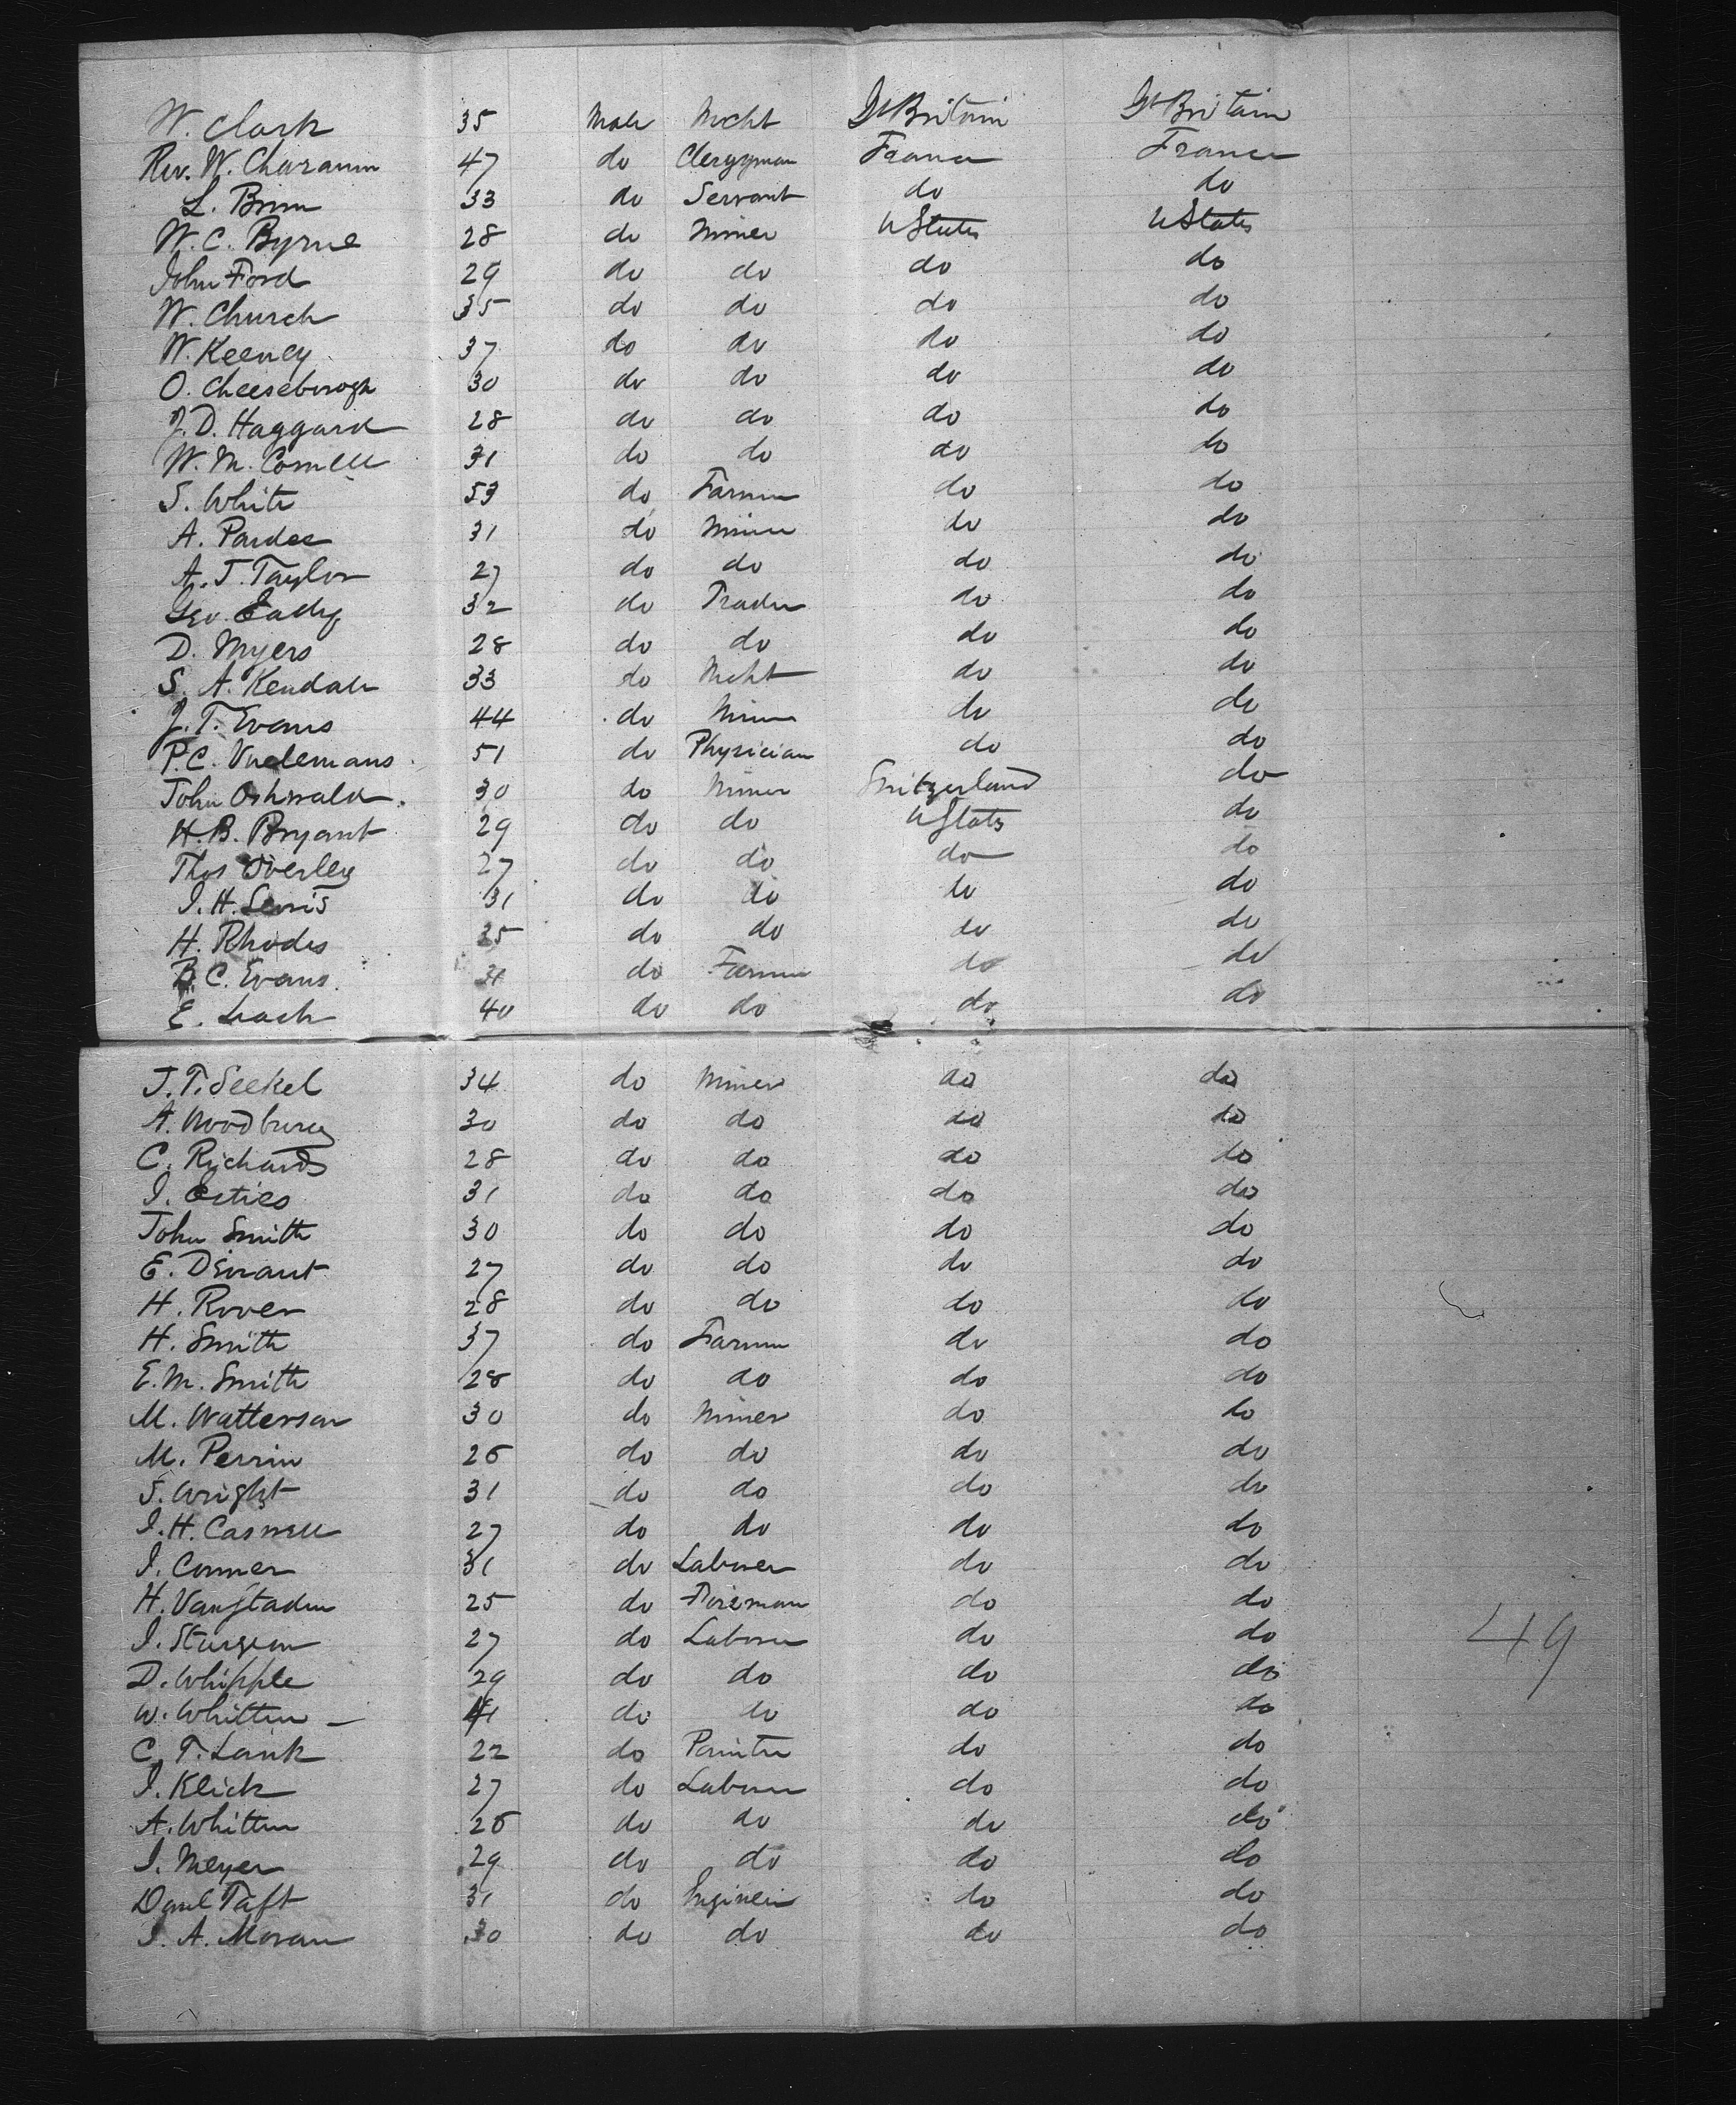 W. Clark 35 Male Mcht Gt Britain Gt Britain
Rev. W. Charaum 47 do Clergyman France France
L. Brim 33 do Servant do do
W. C. Byrne 28 do Miner U States U States
John Ford 29 do do do do
W. Church 35 do do do do
W. Keeney 37 do do do do
O. Cheeseborogh 30 do do do do
J. D. Haggard 28 do do do do
W. M. Cornell 31 do do do do
S. White 53 do Farmer do do
A. Pardee 31 do Miner do do
A. J. Taylor 27 do do do do
Geo. Eady 32 do Trader do do
D. Myers 28 do do do do
S. A. Kendall 33 do Mcht do do
J. T. Evans 44 do Miner do do
P. C. Vuelemans 51 do Physician do do
John Oshwald 30 do Miner Switzerland do
H. B. Bryant 29 do do U States do
Thos Overley 27 do do do do
I. H. Lewis 31 do do do do
H. Rhodes 35 do do do do
B. C. Evans do Farmer do do
E. Leach 40 do do do do
J. T. Seekel 34 do Miner do do
A. Woodbury 30 do do do do
C. Richards 28 do do do do
I. Esties 31 do do do do
John Smith 30 do do do do
E. Durant 27 do do do do
H. Rover 28 do do do do
H. Smith 37 do Farmer do do
E. M. Smith 28 do do do do
M. Watterson 30 do Miner do do
M. Perrin 26 do do do do
S. Wright 31 do do do do
I. H. Caswell 27 do do do do
I. Conner 31 do Laborer do do
H. Vanstaden 25 do Fireman do do
I. Sturgeon 27 do Laborer do do
D. Whipple 29 do do do do
W. Whitten 41 do do do do
C. T. Lank 22 do Painter do do
I. Klick 27 do Laborer do do
A. Whitten 26 do do do do
I. Meyer 29 do do do do
Danl Taft 31 do Engineer do do
I. A. Moran 30 do do do do
49